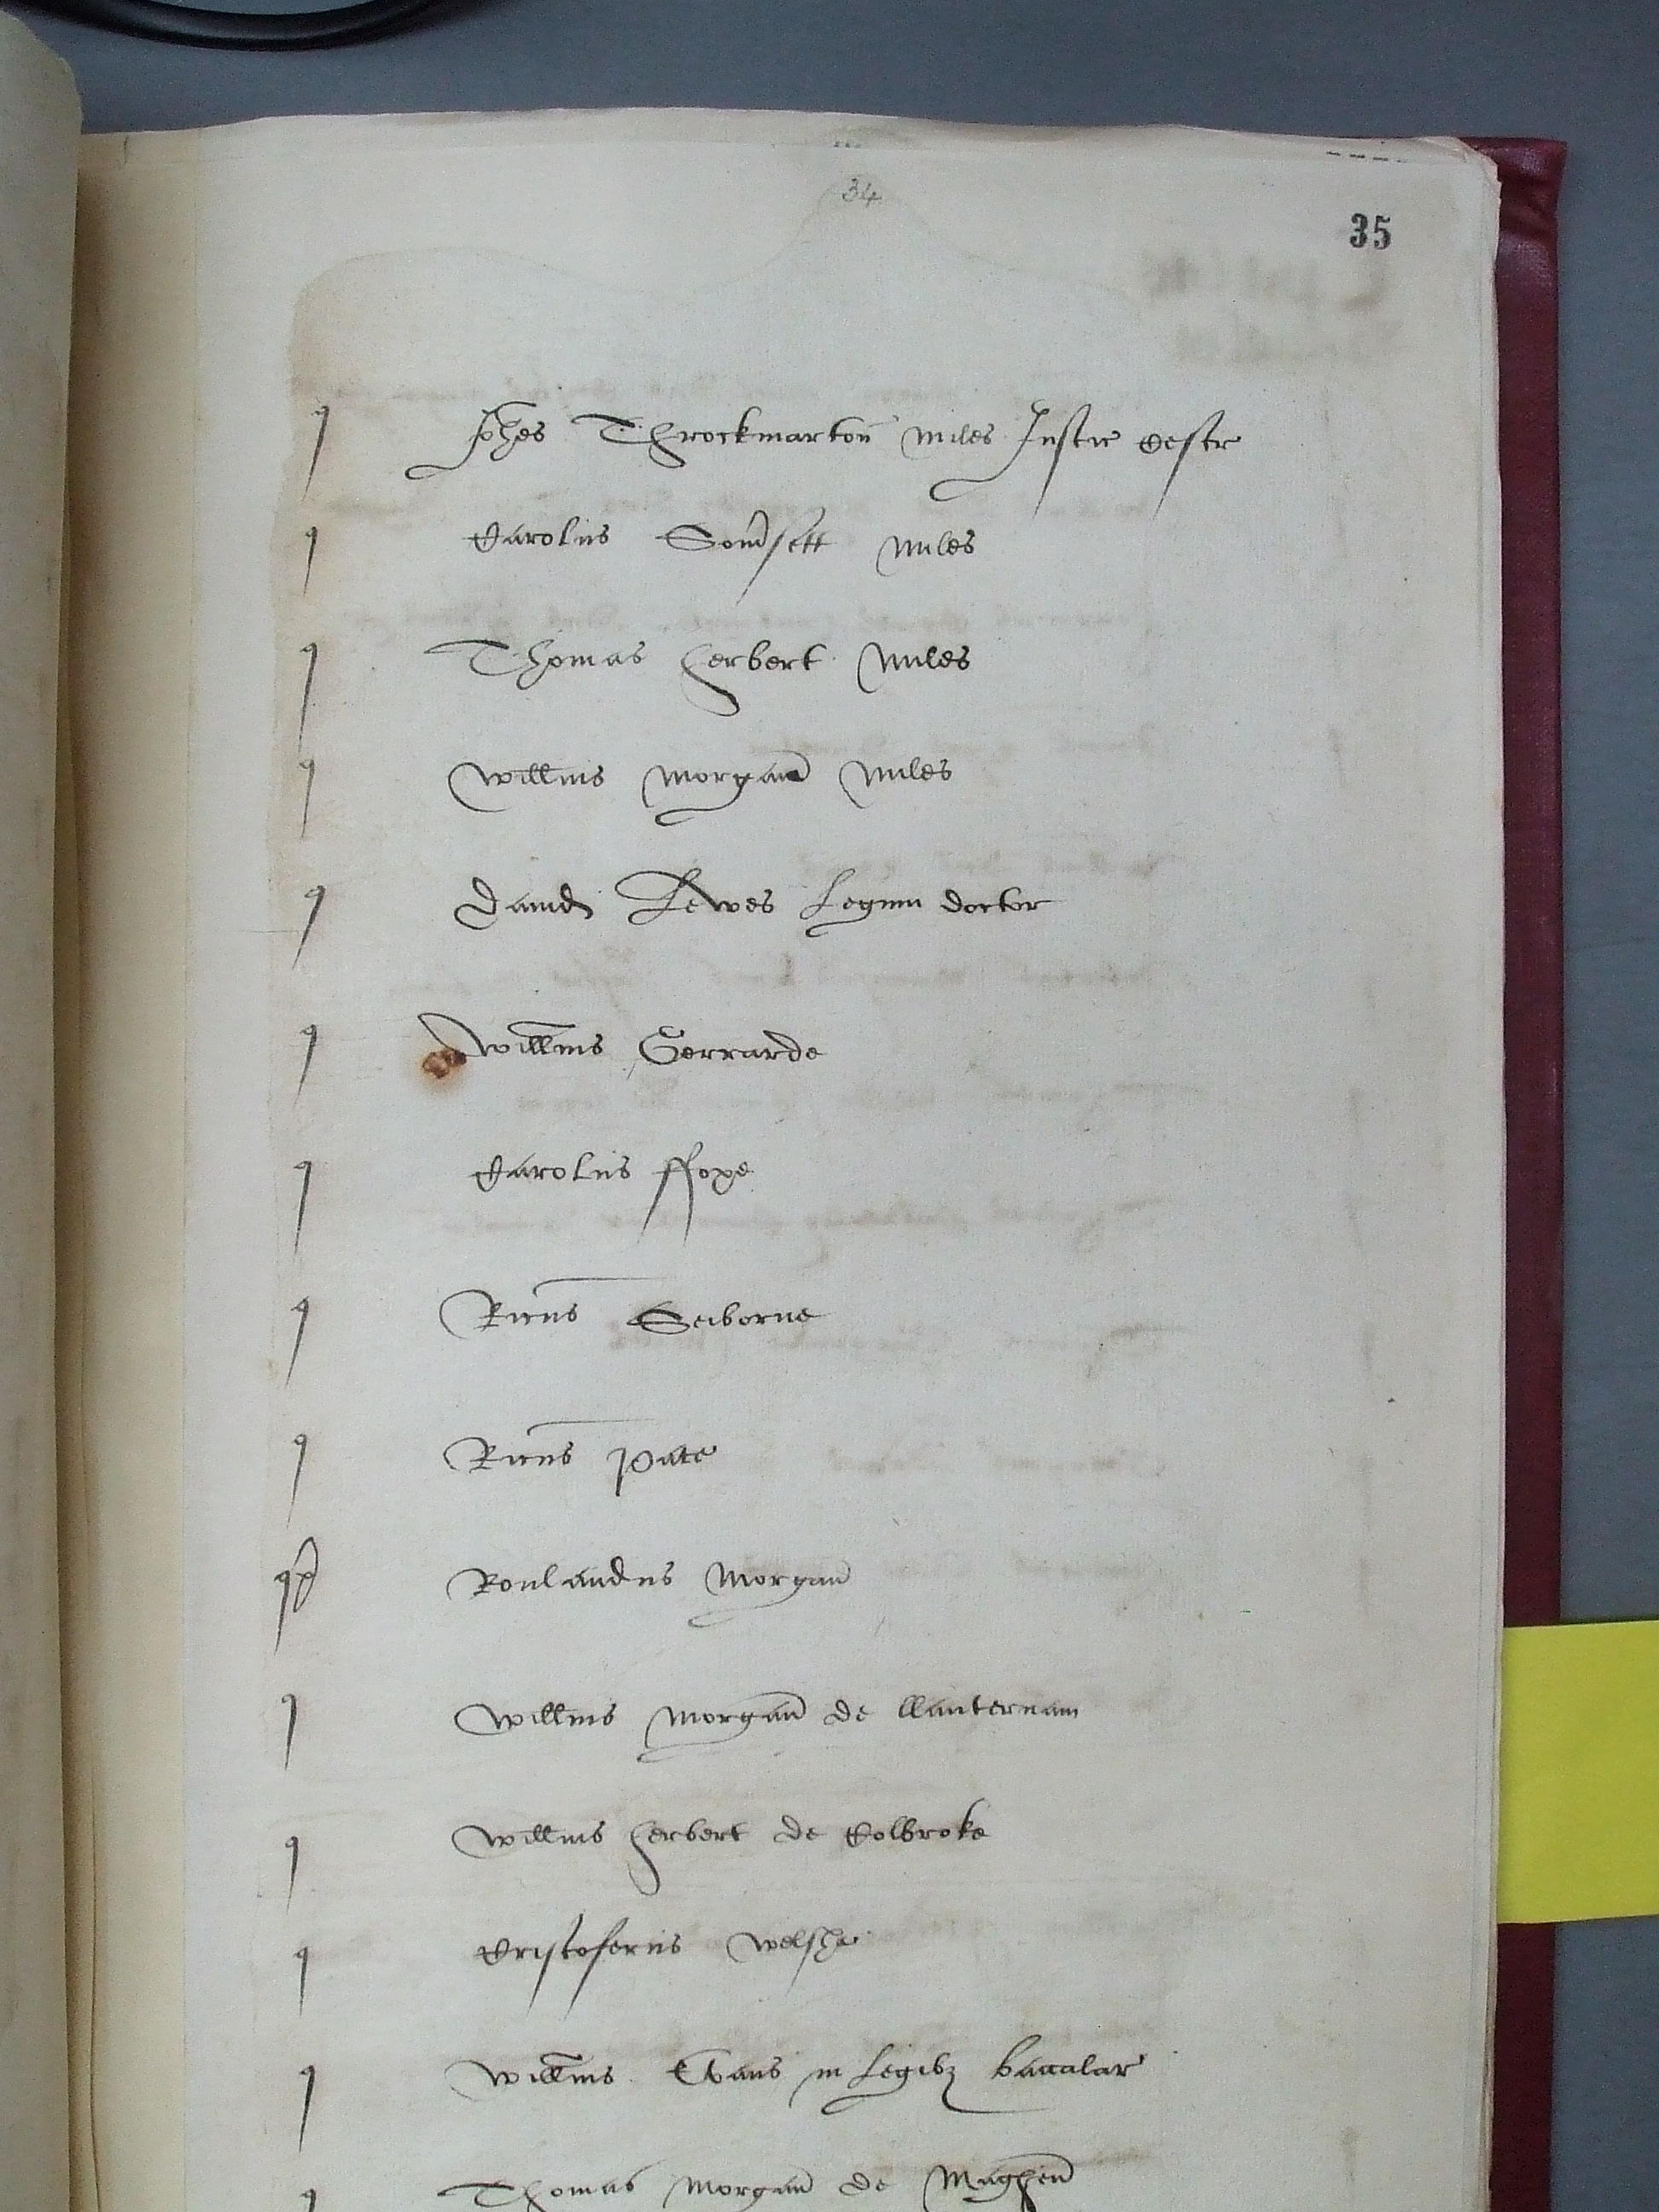 34
35
q Johes Throckmarton miles Justic Cestr
q Carolus Somersett miles
q Thomas herbert miles
q Willms Morgan miles
q David Lewes Legum doctor
q Willms Gerrarde
q Carolus ffoxe
q Ricus Seborne
q Ricus Pate
q Roulandus Morgan
q Willms Morgan de llanternam
q Willms herbert de Colbroke
q Cristoferus Welshe
q Willms Evans in Legibz bacalar
q Thomas Morgan de Maghen